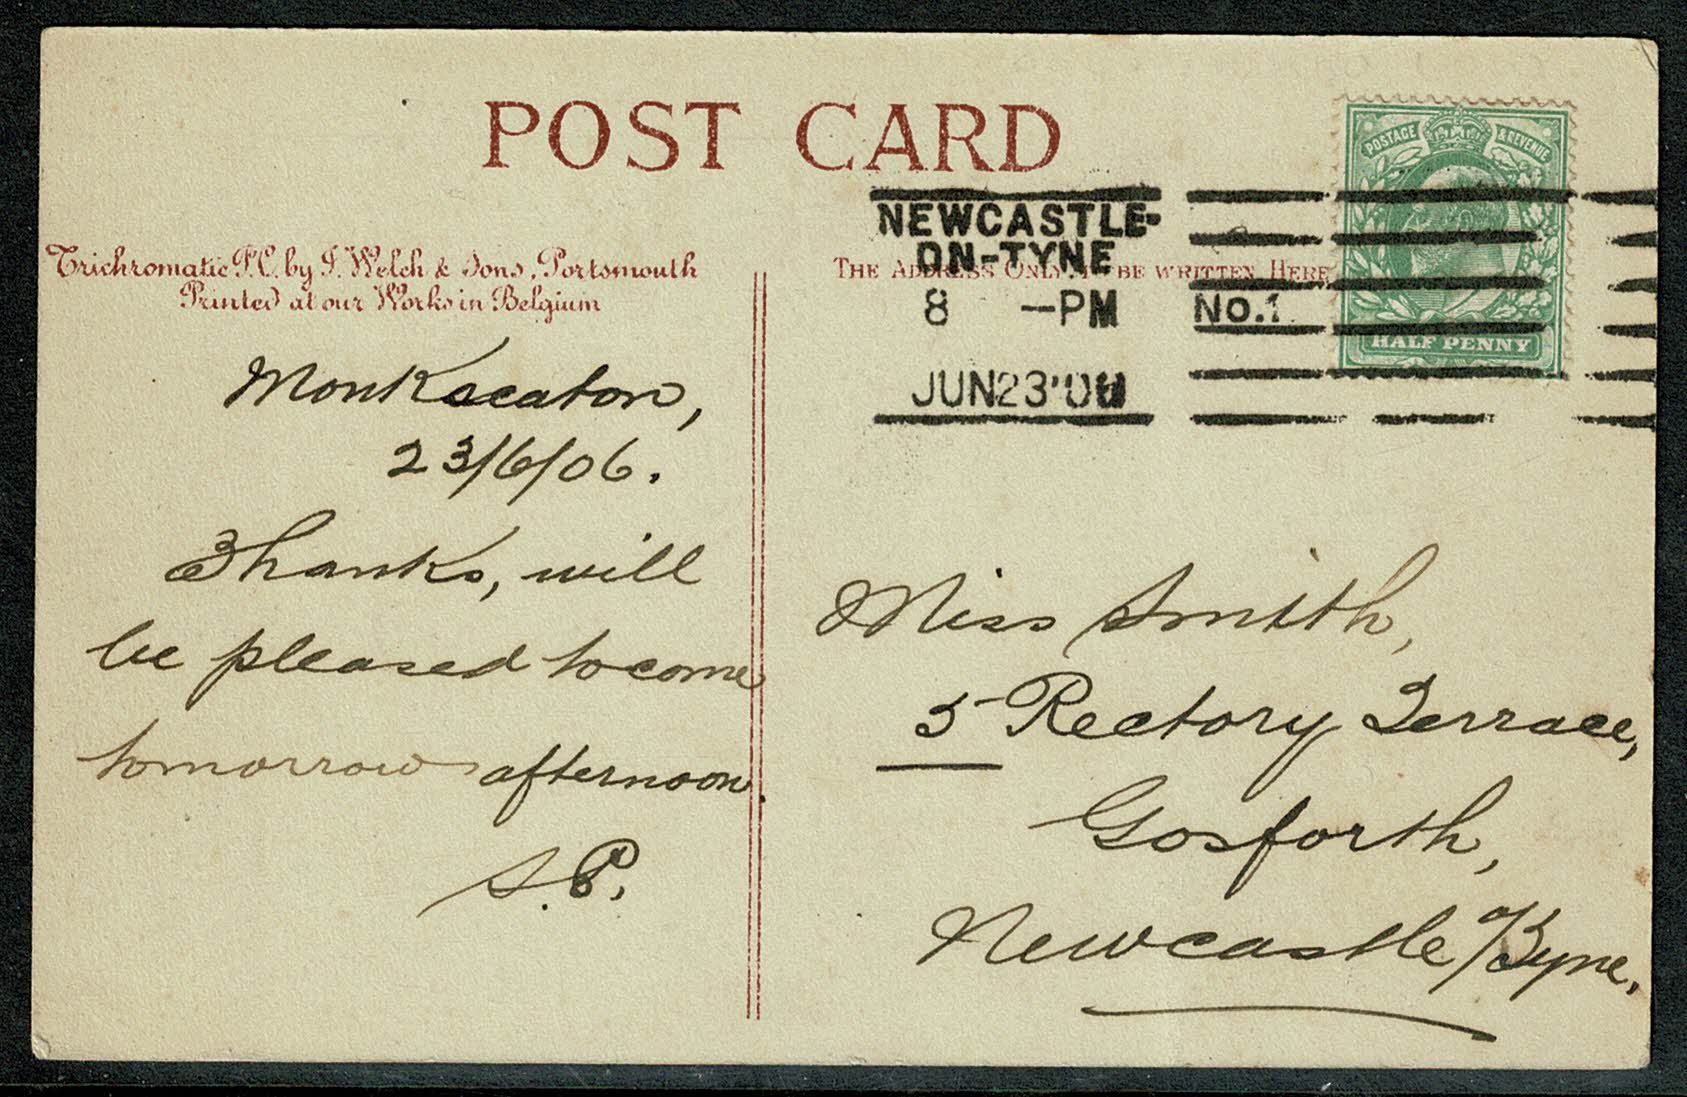 POST CARD
Trichromatic P.C. by J. Welch & Sons, Portsmouth
Printed at our Works in Belgium
Monkseaton,
23/6/06.
Thanks, will
be pleased to come
tomorrow afternoon.
S.P.
POSTAGE & REVENUE
HALF PENNY
NEWCASTLE-
ON-TYNE
8 -PM No.1
JUN 23 '06
THE ADDRESS ONLY TO BE WRITTEN HERE
Miss Smith,
5 Rectory Terrace,
Gosforth,
Newcastle o/Tyne.